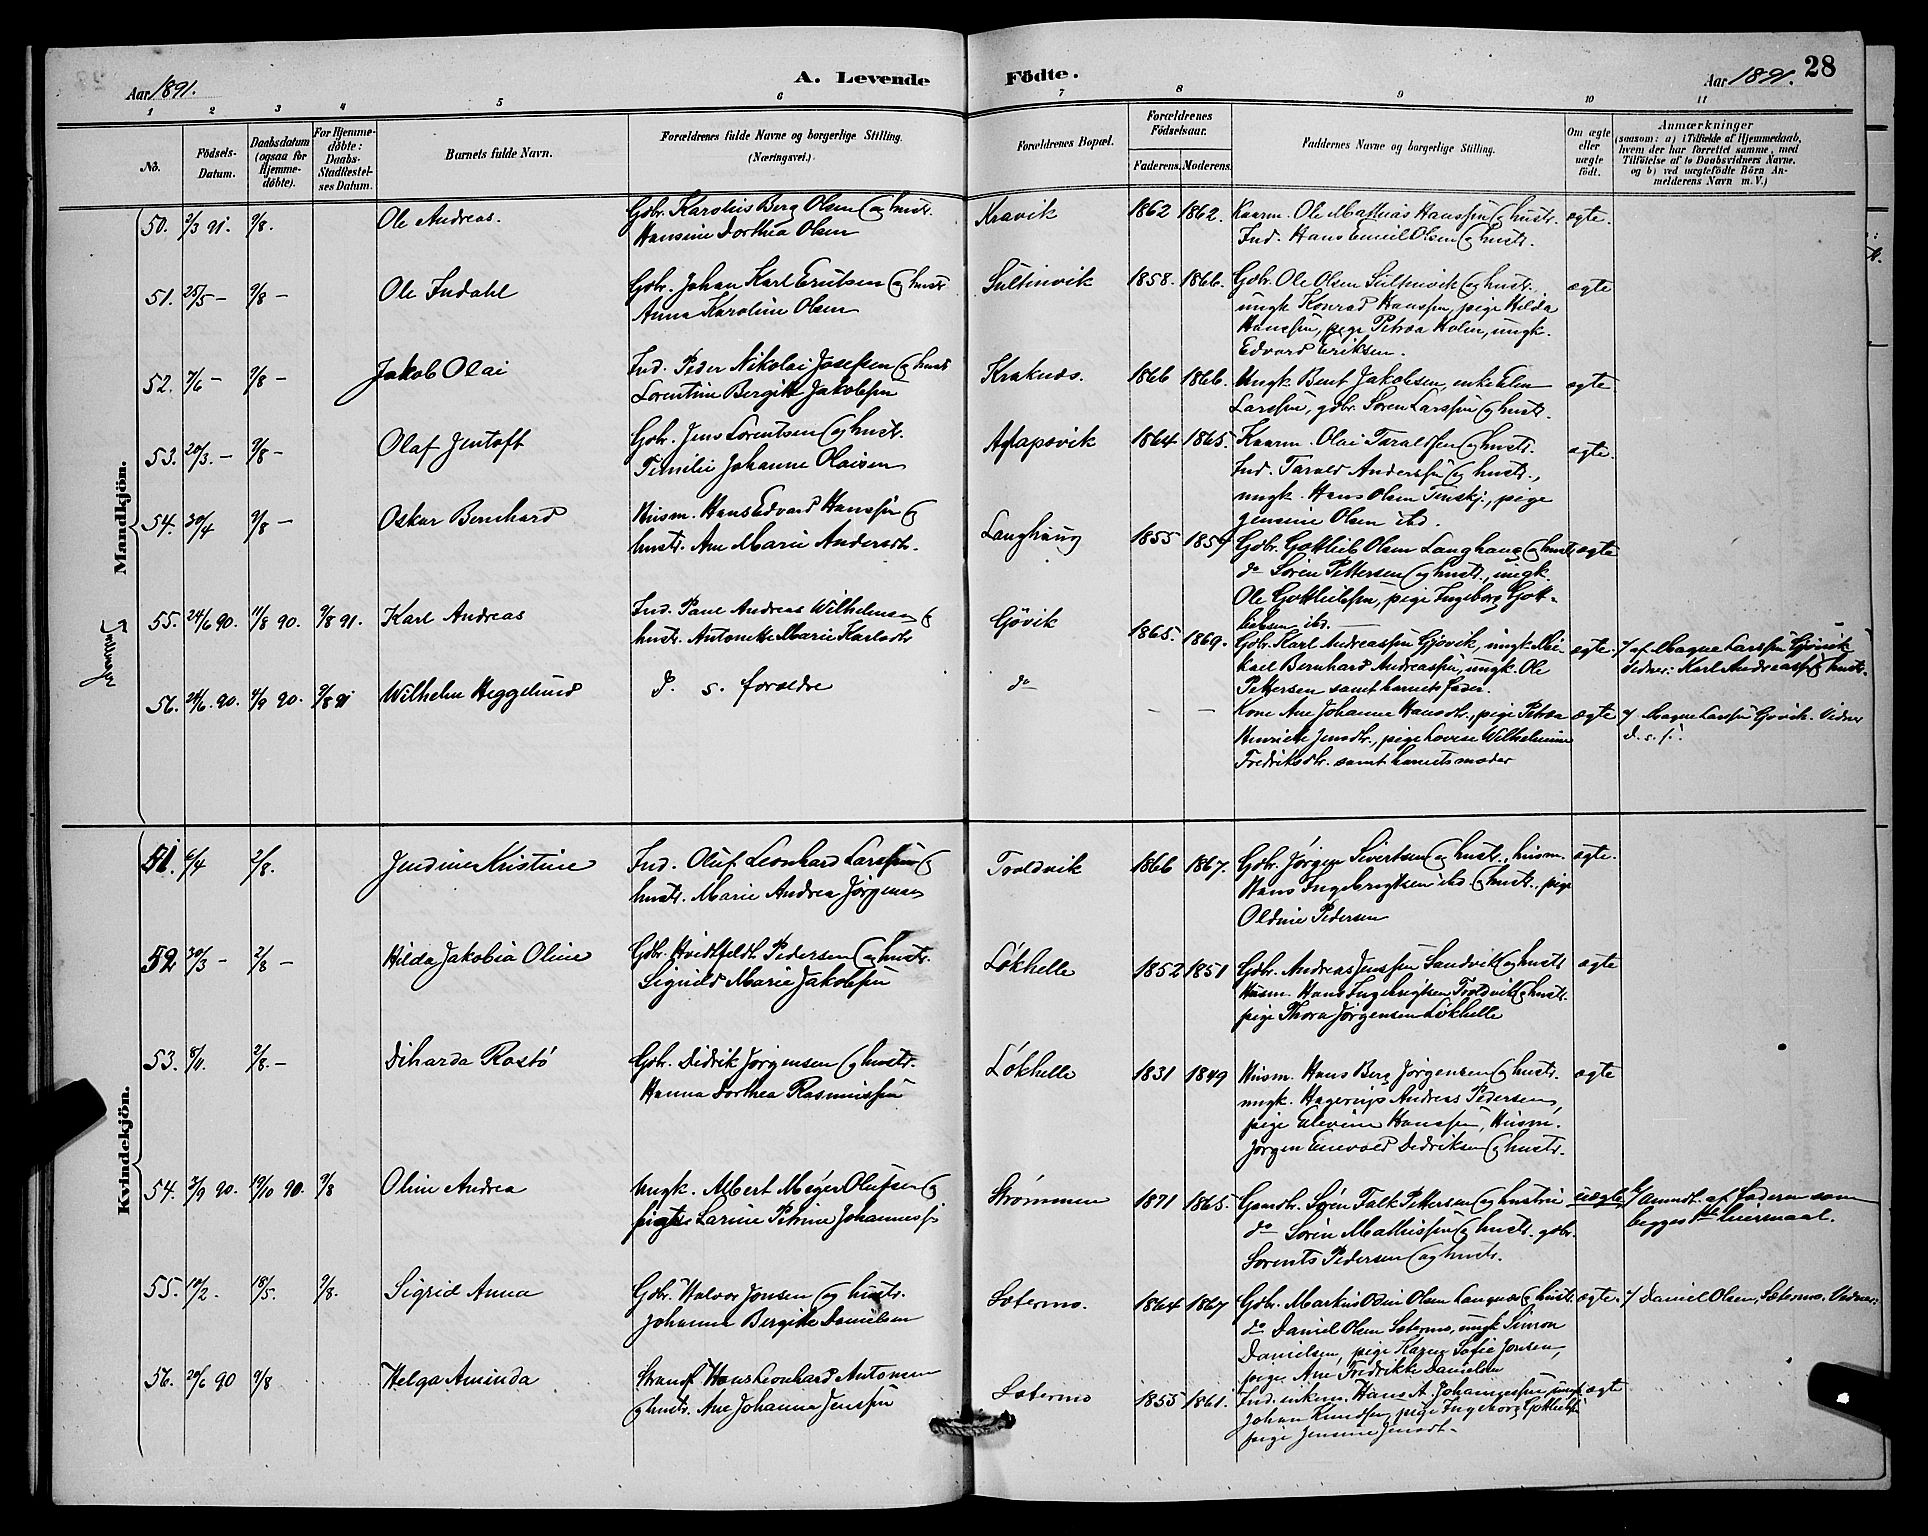 Aar 1891.
A. Levende
Födte.
Aar 1891.
28
1 2 3 4 5 6 7 8 9 10 11
No.
Födsels-Datum.
Daabsdatum (ogsaa for Hjemme-döbte).
For Hjemme-döbte: Daabs-Stadfæstel-ses Datum.
Barnets fulde Navn.
Forældrenes fulde Navne og borgerlige Stilling.
(Næringsvei.)
Forældrenes Bopæl.
Forældrenes Födselsaar.
Faderens. Moderens.
Faddernes Navne og borgerlige Stilling.
Om ægte eller uægte födt.
Anmærkninger
(saasom: a) i Tilfælde af Hjemmedaab,
hvem der har forrettet samme, med
Tilföielse af to Daabsvidners Navne,
og b) ved uægtefödte Börn An-
melderens Navn m. V.)
Mandkjön.
Tvillinger
50. 2/3 91. 9/8. Ole Andreas. Gbr. Karolius Berg Olsen (og hustr. Kravik 1862 1862. Kaarm. Ole Mathias Hanssen (og hustr. ægte.
Hansine Dorthea Olsen
Ind. Hans Emil Olsen (og hustr.
51. 25/5 – 9/8 – Ole Indahl Gbr. Johan Karl Eriksen (og hustr. Sultinvik 1858. 1866. Gbr. Ole Olsen Sultinvik (og hustr. ægte
Anna Karoline Olsen
ungk. Konrad Hanssen, pige Hilda
Hanssen, pige Petrea Holm, ungk.
Edvard Eriksen.
52. 7/6 – 9/8 – Jakob Olai Ind. Peder Nikolai Josefsen (og hustr. Kraknes. 1866 1866. Ungk. Bent Jakobsen, enke Elen ægte.
Lorentine Bergitte Jakobsen
Larssen, gbr. Sören Larssen (og hustr.
53. 20/3. – 9/8 – Olaf Jentoft Gbr. Jens Lorentsen (og hustr. Aglapsvik 1864 1865. Kaarm. Olai Taraldsen (og hustr. ægte.
Johanne Olaisen
Ind. Tarald Anderssen (og hustr.,
ungk. Hans Olsen Finskj., pige
Jensine Olsen ibd.
54. 30/4 9/8 – Oskar Bernhard Husm. Hans Edvard Hanssen (og Langhaug 1855 1857 Gbr. Gottlieb Olsen Langhaug (og hustr. ægte
hustr. Ane Marie Andersdtr.
do Sören Pettersen (og hustr., ungk.
Ole Gottliebsen, pige Ingeborg Gott-
liebsen ibd.
55. 24/6 90. 11/8 90. 9/8 91. Karl Andreas Ind. Paul Andreas Wilhelmsen og Gövik 1865. 1869. Gbr. Karl Andreassen Gjövik, ungk. Mi- ægte. af Magne Larssen Gjövik
hustr. Antonette Marie Karlsdtr
kael Bernhard Andreassen, ungk. Ole
Vidner: Karl Andreassen og hustr.
Pettersen samt barnets fader.
56. 24/6. 90. 4/9 90. 9/8 91 Wilhelm Heggelund D. s. forældre do – – Kone Ane Johanne Hansdtr., pige Petrea ægte Magne Larssen Gjövik. Vidner
Henriette Jensdtr., pige Lovise Wilhelmine
d. s. f.
Fredriksdtr. samt barnets moder
Kvindekjön.
51. 6/4 2/8. Jendine Kristine Ind. Oluf Leonhard Larssen og Troldvik 1866 1867. Gbr. Jörgen Sivertsen (og hustr., husm. ægte.
hustr. Marie Andrea Jörgensen
Hans Ingebrigtsen ibd. (og hustr., pige
Oldine Pedersen
52 30/3 – 2/8 – Hilda Jakobia Oline Gbr. Hvidtfeldt Pedersen (og hustr. Lökhelle 1852 1851 Gbr. Andreas Jenssen Sandvik (og hustr. ægte
Sigrild Marie Jakobsen
Husm. Hans Ingebrigtsen Troldvik (og hustr.
pige Thora Jörgensen Lökhelle
53. 8/11. 2/8. – Diharda Rostö Gbr. Didrik Jörgensen (og hustr. Lökhelle 1831 1849 Husm. Hans Berg Jörgensen (og hustr. ægte
Hanna Dorthea Rasmussen
ungk. Hagerup Andreas Pedersen,
pige Elevine Hanssen, Husm.
Jörgen Enevold Didriksen (og hustr.
54. 3/9 90. 19/10 90. 9/8 Oline Andrea Ungk. Albert Meyer Olufsen og Strömmen 1871 1865. Gaardbr. Sören Falk Pettersen (og hustru uægte Anmdt. af Faderen som
pige Larine Petrine Johanness.
do Sören Mathissen (og hustr. gbr.
begges 1ste leiermaal.
Lorents Pedersen (og hustr.
55. 10/2. 18/5. 9/8. Sigrid Anna Gbr. Halvor Jensen (og hustr. Sætermo. 1864 1867 Gbr. Markus Odin Olsen Langnes (og hustr. ægte. Daniel Olsen, Sætermo. Vidner:
Johanna Bergitte Danielsen
do Daniel Olsen Sætermo, ungk. Simon
Danielsen, pige Karen Sofie Jensen,
pige Ane Fredrikke Danielsen
56. 20/6 90 9/8 Helga Aminda Strands. Hans Leonhard Antonsen Sætermo 1855 1861. Ind. enkem. Hans A. Johannessen, ungk. ægte
og hustr. Ane Johanna Jenssen
Johan Knudsen, pige Ingeborg Gottliebsen
pige Jensine Jensdt.